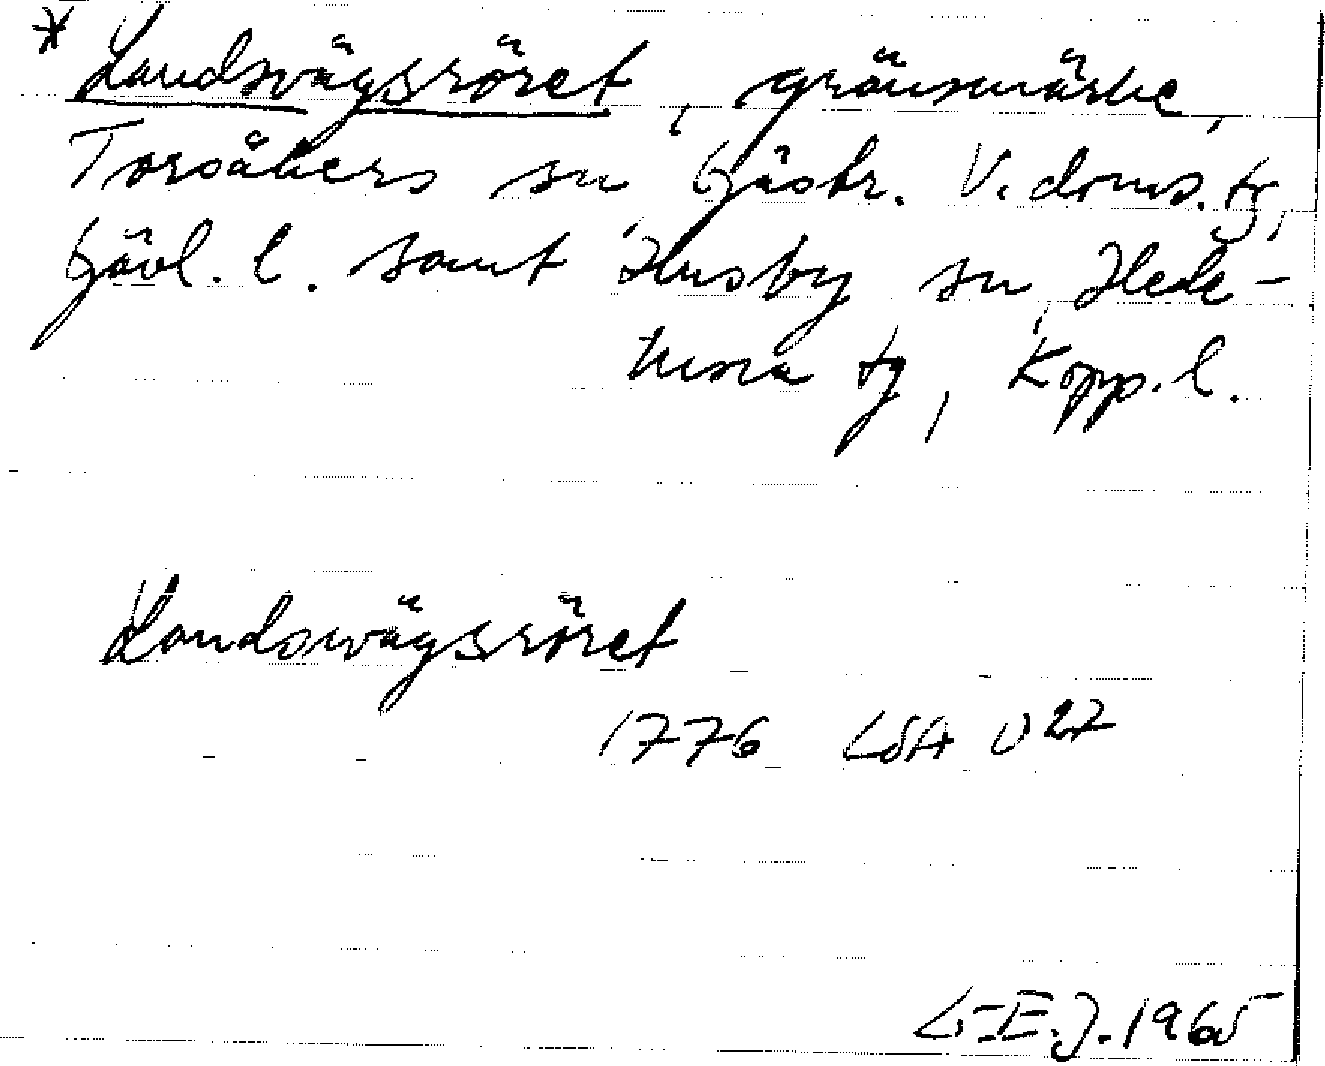 * Landsvägsröret, gränsmärke,
Torsåkers sn Gästr. V. doms. tg,
Gävl. l. samt Husby sn, Hede-
mora tg, Kopp. l.
Landswägsröret
1776 LSA U 27
L-E.J. 1965